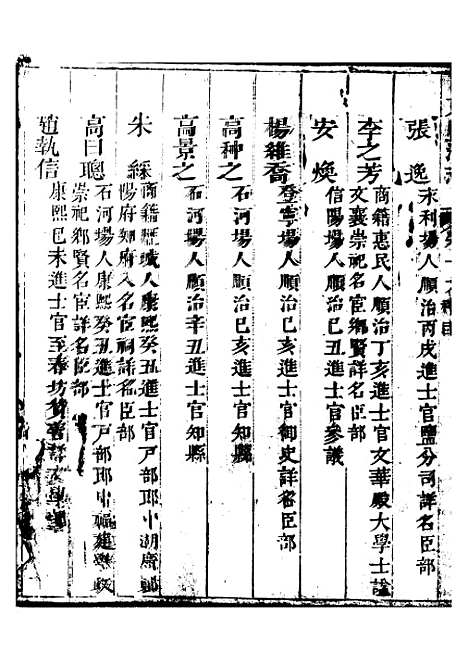 張逸
永利場人順治丙戌進士官鹽分司詳名臣部
李之芳
商籍惠民人順治丁亥進士官文華殿大學士諡
文襄崇祀名宦鄉賢詳名臣部
安煥
信陽場人順治己丑進士官參議
楊維喬
登寧場人順治己亥進士官御史詳名臣部
高种之
石河場人順治己亥進士官知縣
高景之
石河場人順治辛丑進士官知縣
朱綵
商籍歷城人康熙癸丑進士官戶部郎中湖廣
陽府知府入名宦祠詳名臣部
高曰聰
石河場人康熙癸丑進士官戶部郎中福建
崇祀鄉賢名宦詳名臣部
趙執信
康熙己未進士官至春坊贊善詳文學部